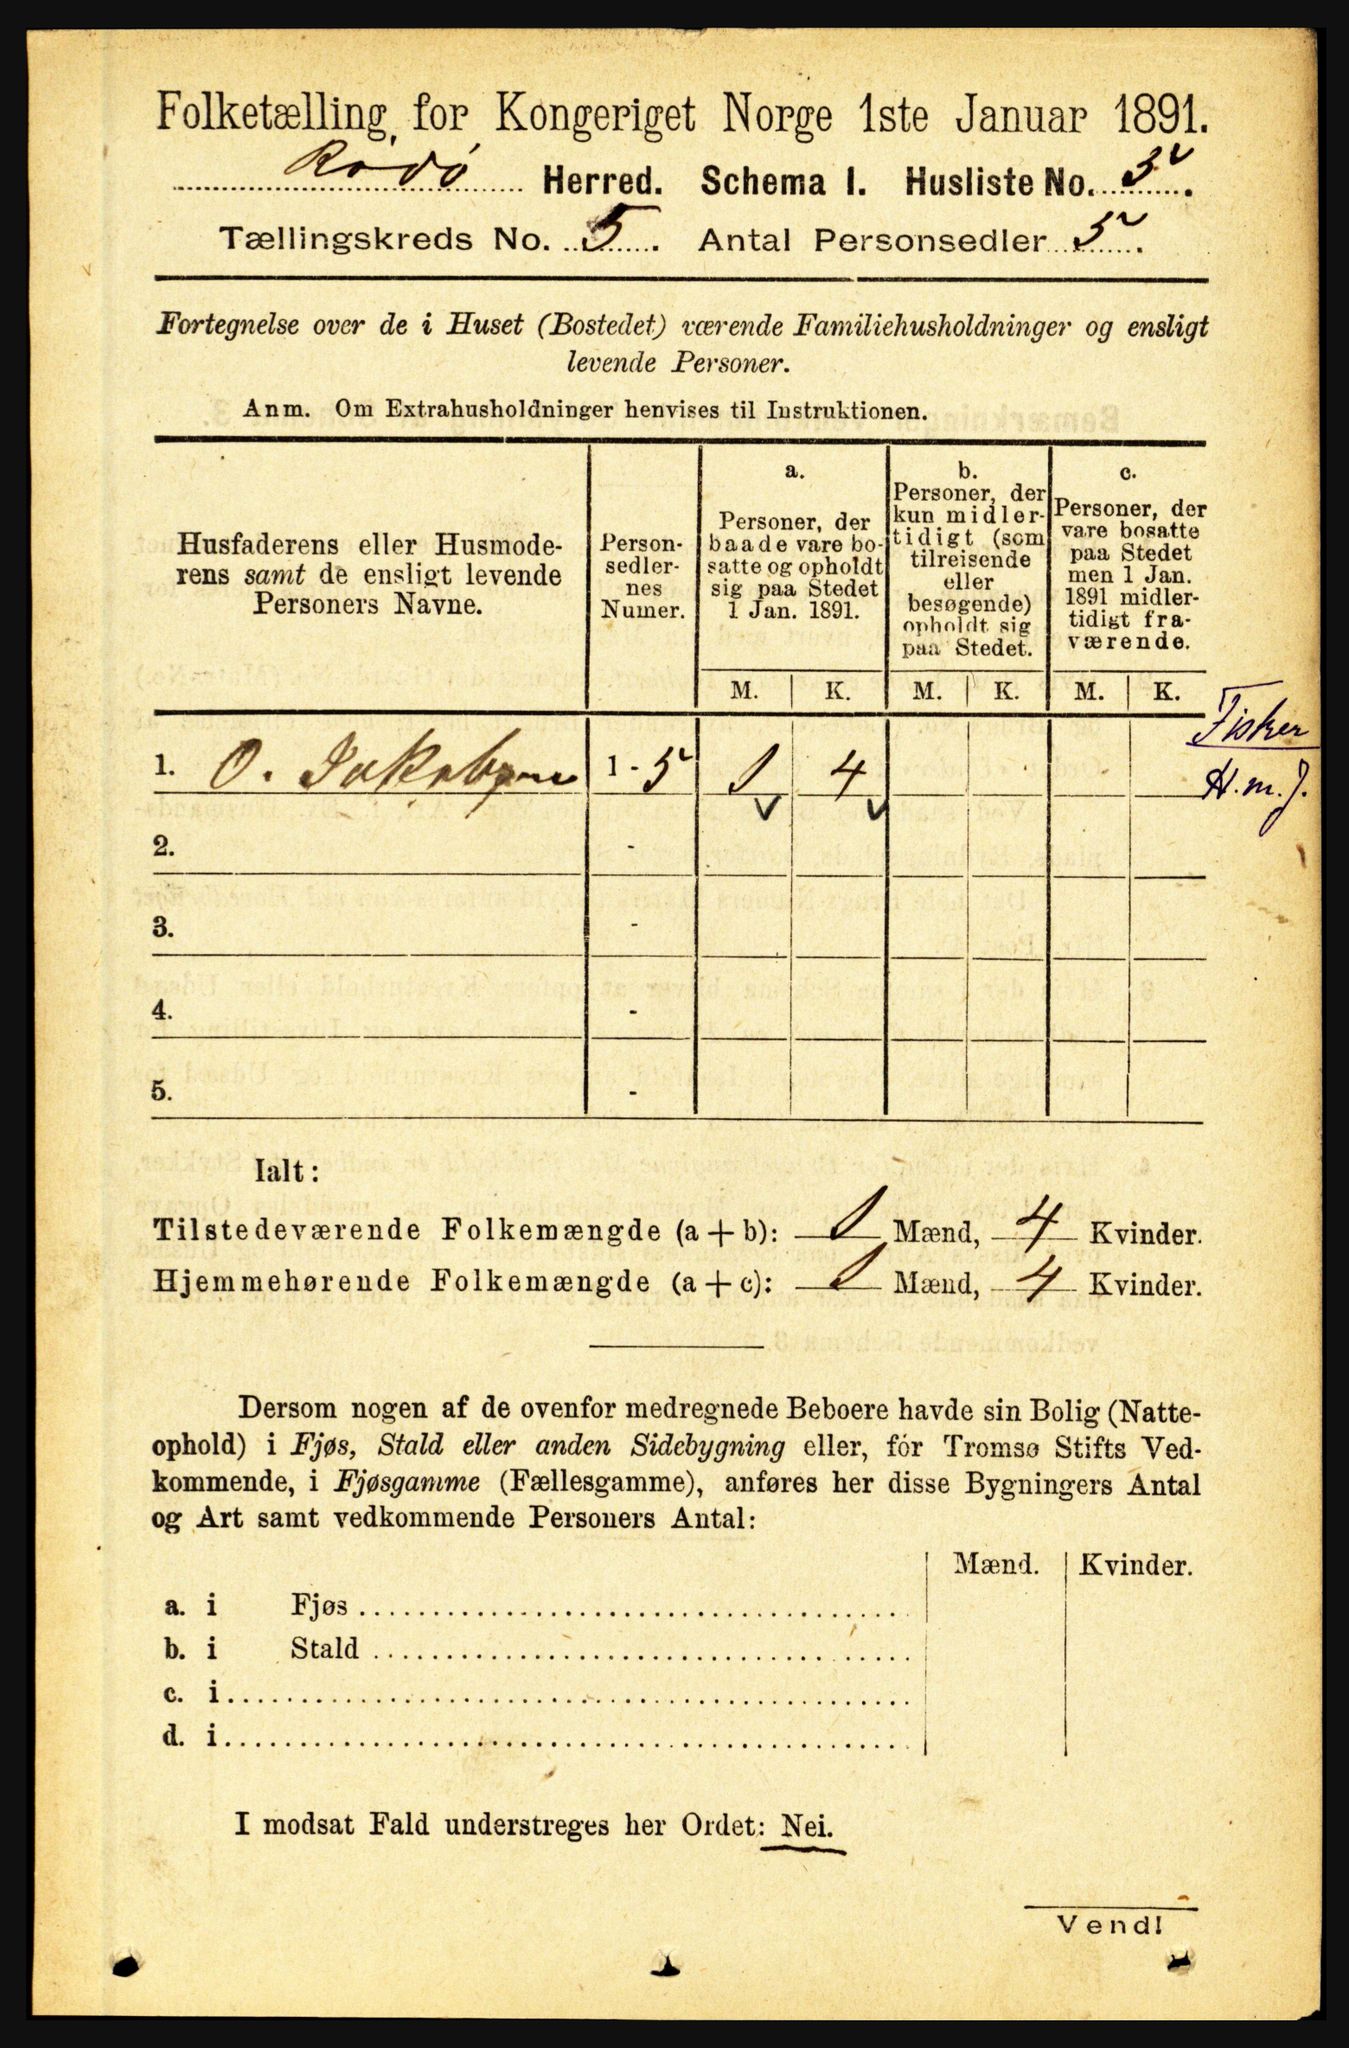 Folketælling for Kongeriget Norge 1ste Januar 1891.
Rødø Herred. Schema I. Husliste No. 5.
Tællingskreds No. 5. Antal Personsedler 5.
Fortegnelse over de i Huset (Bostedet) værende Familiehusholdninger og ensligt
levende Personer.
Anm. Om Extrahusholdninger henvises til Instruktionen.
Husfaderens eller Husmode-
rens samt de ensligt levende
Personers Navne.
Person-
sedler-
nes
Numer.
a.
Personer, der
baade vare bo-
satte og opholdt
sig paa Stedet
1 Jan. 1891.
b.
Personer, der
kun midler-
tidigt (som
tilreisende
eller
besøgende)
opholdt sig
paa Stedet.
c.
Personer, der
vare bosatte
paa Stedet
men 1 Jan.
1891 midler-
tidigt fra-
værende.
M. K. M. K. M. K.
Fisker
1. O. Jakobsen 1 - 5 1 4
H. m. J.
2. -
3. -
4. -
5. -
Ialt:
Tilstedeværende Folkemængde (a + b): 1 Mænd, 4 Kvinder.
Hjemmehørende Folkemængde (a + c): 1 Mænd, 4 Kvinder.
Dersom nogen af de ovenfor medregnede Beboere havde sin Bolig (Natte-
ophold) i Fjøs, Stald eller anden Sidebygning eller, for Tromsø Stifts Ved-
kommende, i Fjøsgamme (Fællesgamme), anføres her disse Bygningers Antal
og Art samt vedkommende Personers Antal:
Mænd. Kvinder.
a. i Fjøs
b. i Stald
c. i
d. i
I modsat Fald understreges her Ordet: Nei.
Vend!